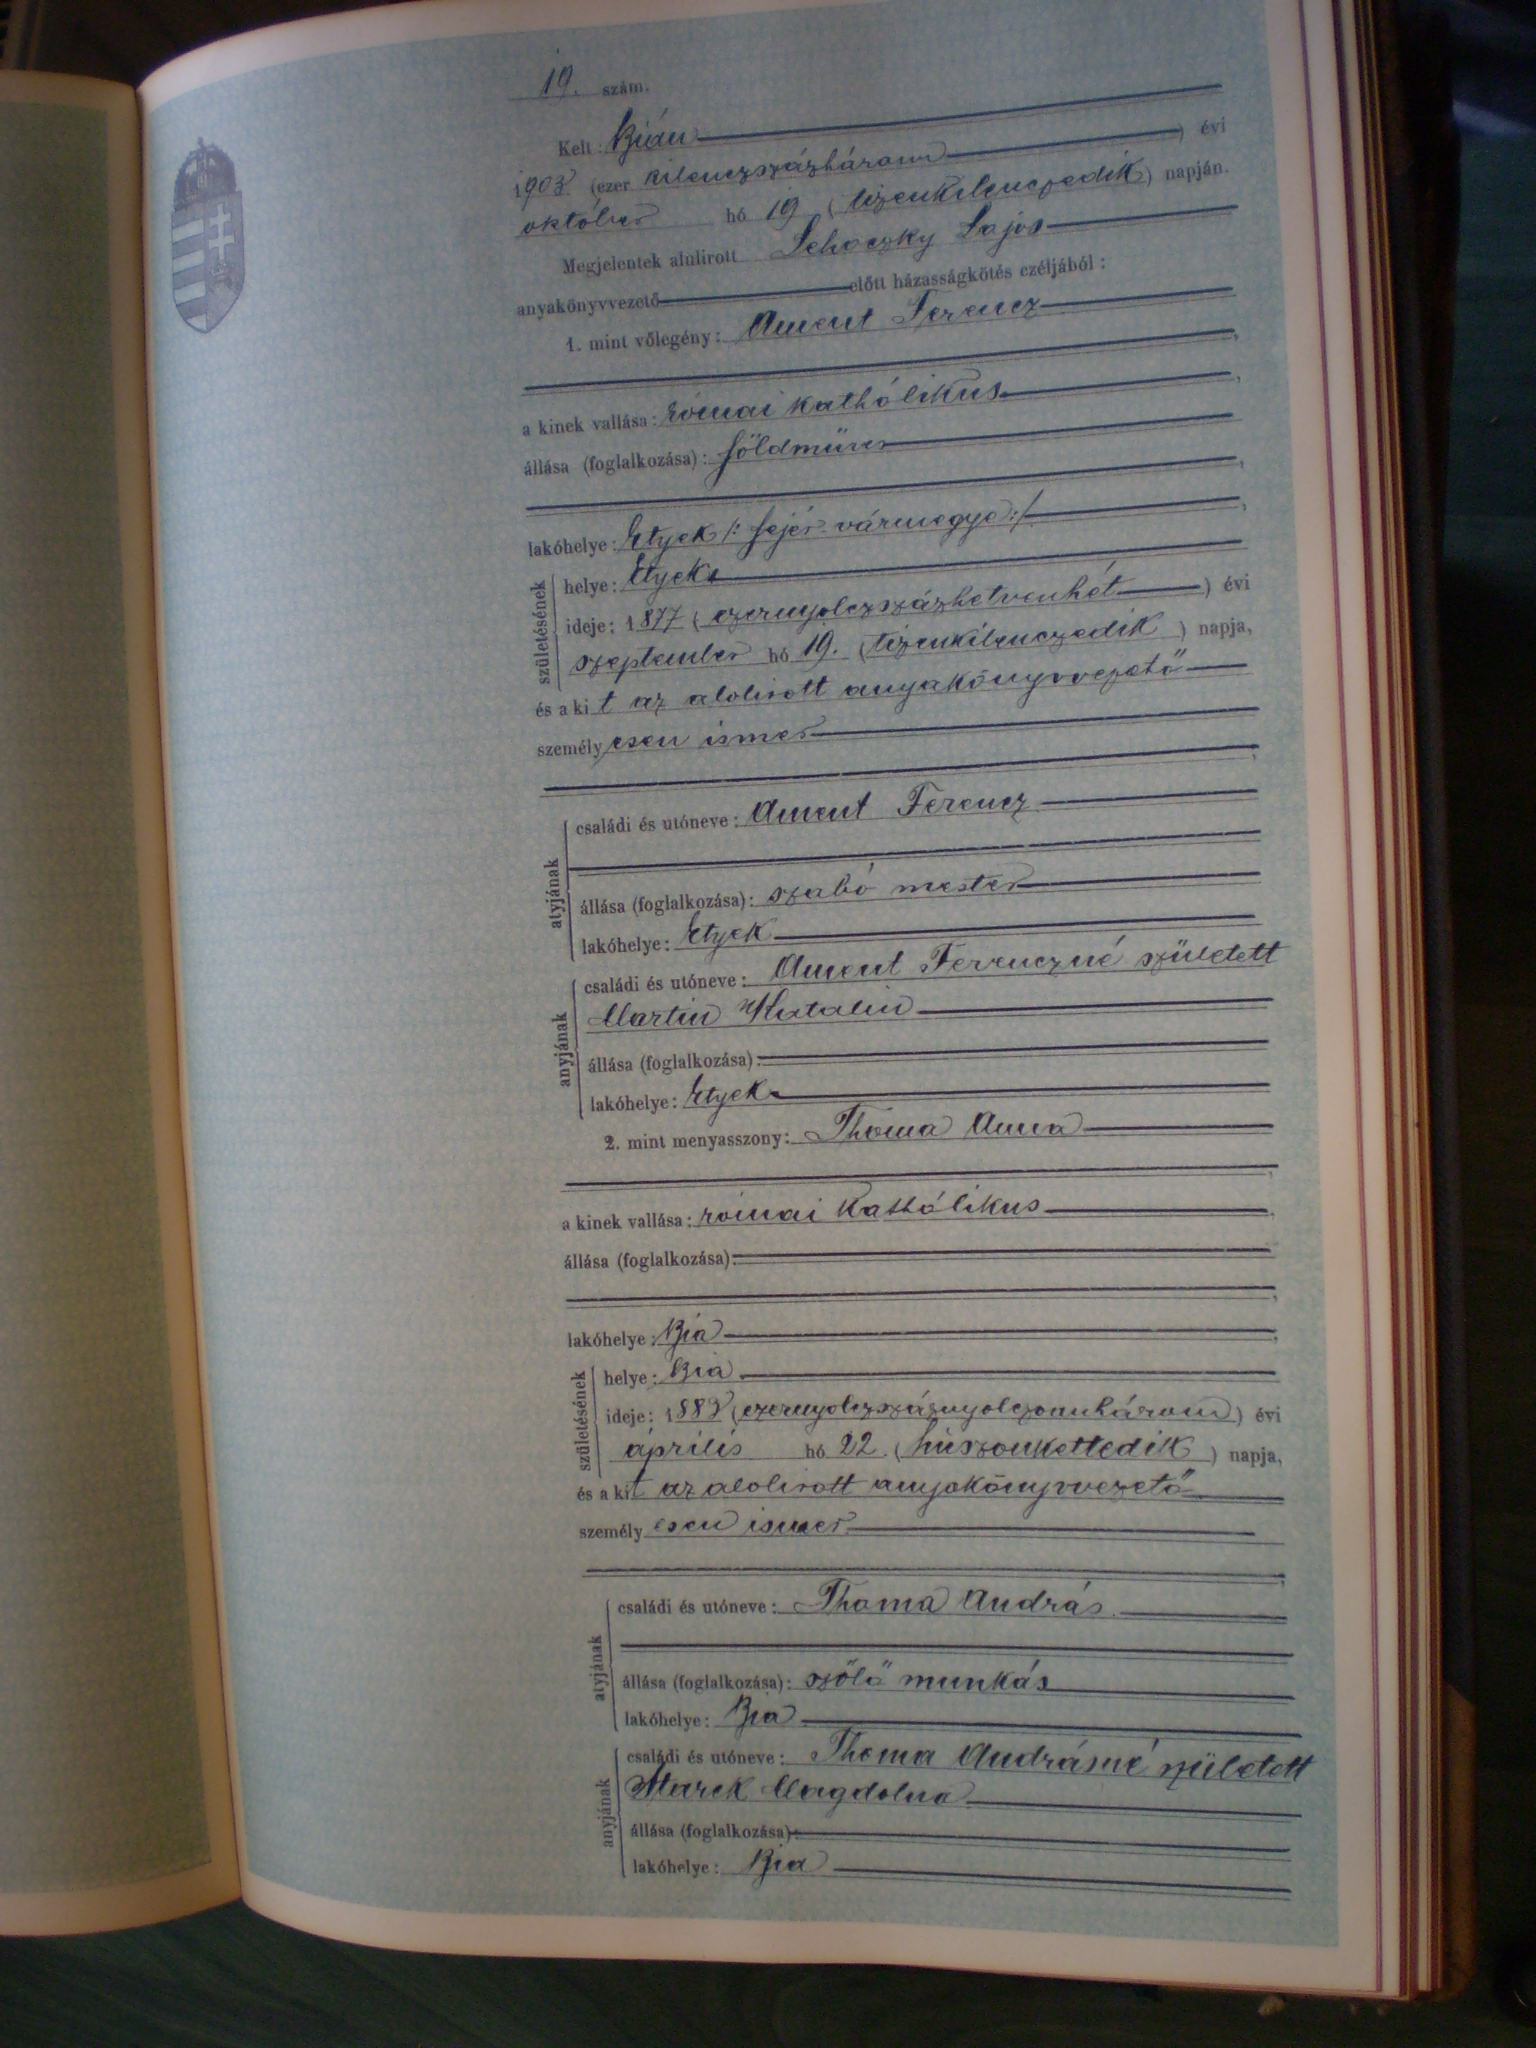 19. szám.
Kelt: Bián
1903 (ezer kilenczszázhárom) évi
október hó 19 (tizenkilenczedik) napján.
Megjelentek alulirott Lehoczky Lajos
anyakönyvvezető előtt házasságkötés czéljából:
1. mint vőlegény: Ament Ferencz
a kinek vallása: római kathólikus
állása (foglalkozása): földműves
lakóhelye: Etyek /: fejér vármegye :/
születésének
helye: Etyek
ideje: 1877 (ezernyolczszázhetvenhét) évi
szeptember hó 19. (tizenkilenczedik) napja,
és a kit az alolirott anyakönyvvezető
személyesen ismer
atyjának
családi és utóneve: Ament Ferencz
állása (foglalkozása): szabó mester
lakóhelye: Etyek
anyjának
családi és utóneve: Ament Ferenczné született
Martin Katalin
állása (foglalkozása):
lakóhelye: Etyek
2. mint menyasszony: Thoma Anna
a kinek vallása: római kathólikus
állása (foglalkozása):
lakóhelye: Bia
születésének
helye: Bia
ideje: 1883 (ezernyolczszáznyolczvanhárom) évi
április hó 22. (húszonkettedik) napja,
és a kit az alolirott anyakönyvvezető
személyesen ismer
atyjának
családi és utóneve: Thoma András
állása (foglalkozása): szőlő munkás
lakóhelye: Bia
anyjának
családi és utóneve: Thoma Andrásné született
Marek Magdolna
állása (foglalkozása):
lakóhelye: Bia